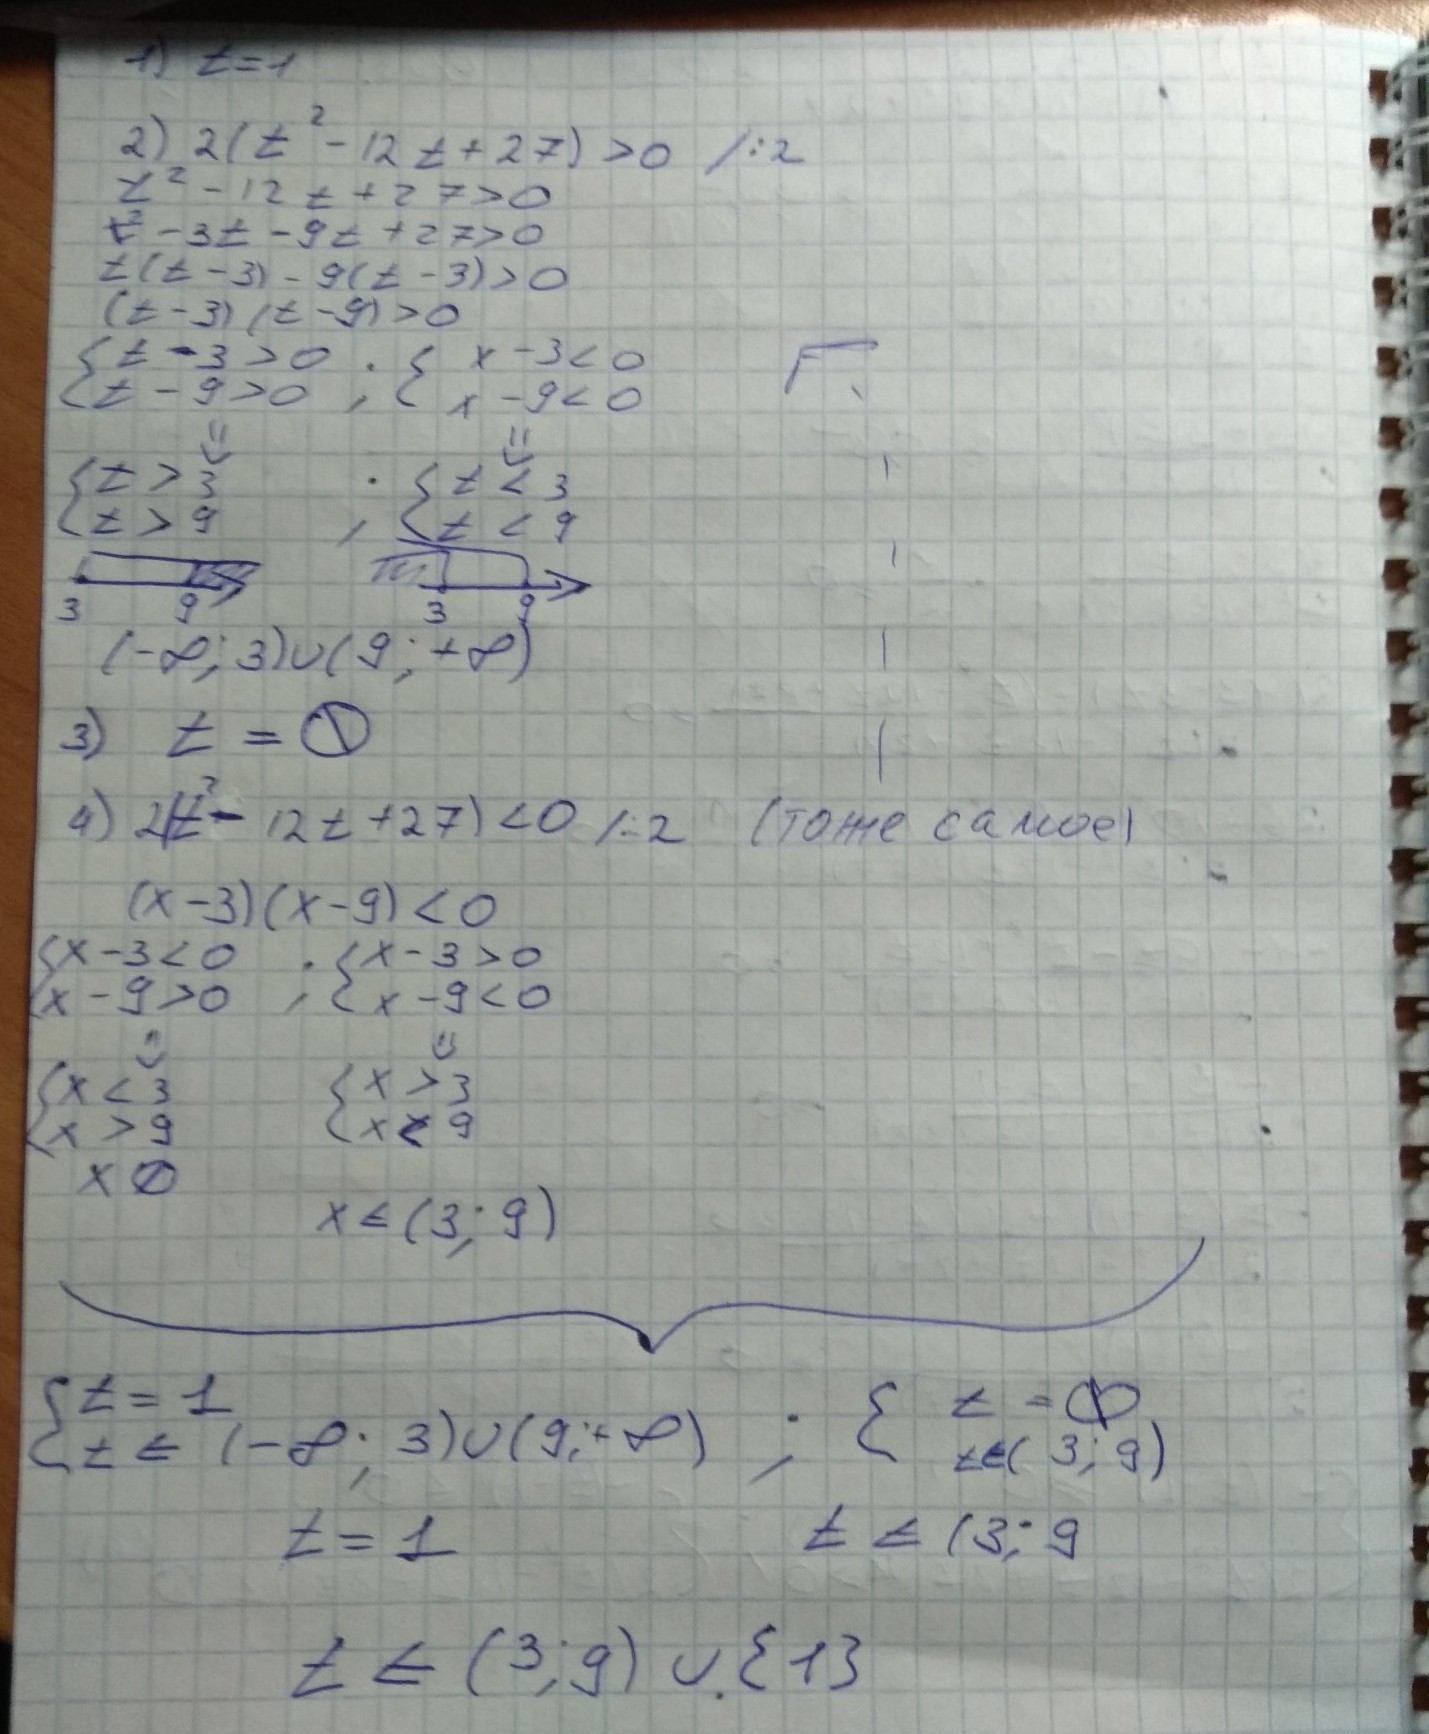 1) t=1
2) 2(t² - 12t + 27) > 0 /:2
t² - 12t + 27 > 0
t² - 3t - 9t + 27 > 0
t(t-3) - 9(t-3) > 0
(t-3)(t-9) > 0
{ t-3>0 ; { x-3<0
{ t-9>0 ; { x-9<0
{ t > 3 ; { t < 3
{ t > 9 ; { t < 9
3 9 3 9
(-∞; 3)∪(9; +∞)
3) t = ∅
4) 2(t² - 12t + 27) < 0 /:2 (тоже самое)
(x-3)(x-9) < 0
{ x-3<0 ; { x-3>0
{ x-9>0 ; { x-9<0
{ x < 3 { x > 3
{ x > 9 { x < 9
x ∅
x ∈ (3; 9)
{ t = 1 ; { t = ∅
{ t ∈ (-∞; 3)∪(9; +∞) ; { t∈(3; 9)
t = 1 t ∈ (3; 9
t ∈ (3; 9) ∪ {1}